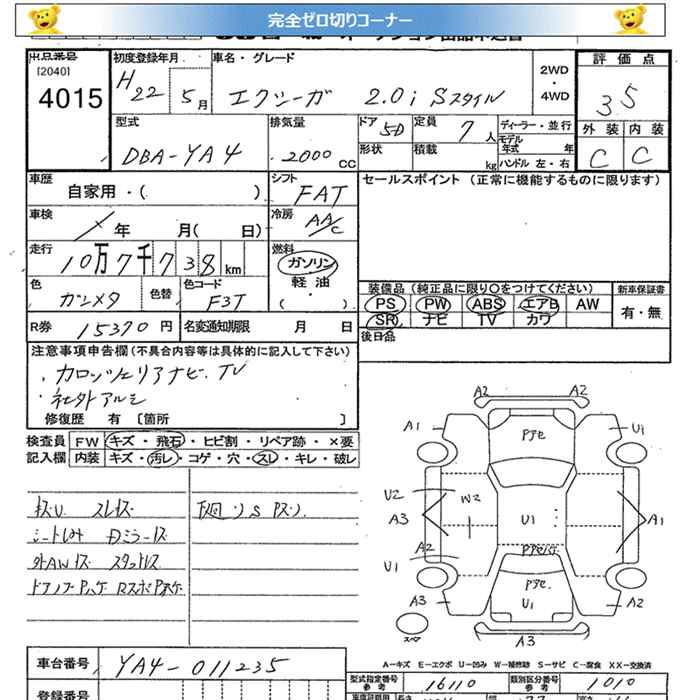 完全ゼロ切りコーナー
出品番号 初度登録年月 車名・グレード 2WD・4WD 評価点
[2040]
4015 H22 5月 エクシーガ 2.0i Sスタイル 3.5
型式 排気量 ドア 5D 定員 7人 ディーラー・並行 外装 内装
DBA-YA4 2000cc 形状 積載 kg モデル年式 年 C C
ハンドル 左・右
車歴 自家用・( ) シフト FAT セールスポイント (正常に機能するものに限ります)
車検 / 年 月( 日) 冷房 AA/C
走行 10万7千738km 燃料 ガソリン
軽油
( )
色 ガンメタ 色替 色コード F3T
装備品 (純正品に限り○をつけてください) 新車保証書
PS PW ABS エアB AW 有・無
SR ナビ TV カワ
R券 15370円 名変通知期限 月 日
後日品
注意事項申告欄 (不具合内容等は具体的に記入して下さい)
.カロッツェリアナビ.TV
.社外アルミ
修復歴 有 [箇所 ]
検査員 FW キズ・飛石・ヒビ割・リペア跡・×要
記入欄 内装 キズ・汚レ・コゲ・穴・スレ・キレ・破レ
スレキズ
外AWキズ
A2 A2
A1 U1
U2 W2
A3 U1 A1
A2
U1
A3 U1 A2
スペア A3
A-キズ E-エクボ U-凹み W-補修跡 S-サビ C-腐食 XX-交換済
車台番号 YA4-011235
型式指定番号 参考 16110 類別区分番号 参考 1010
登録番号